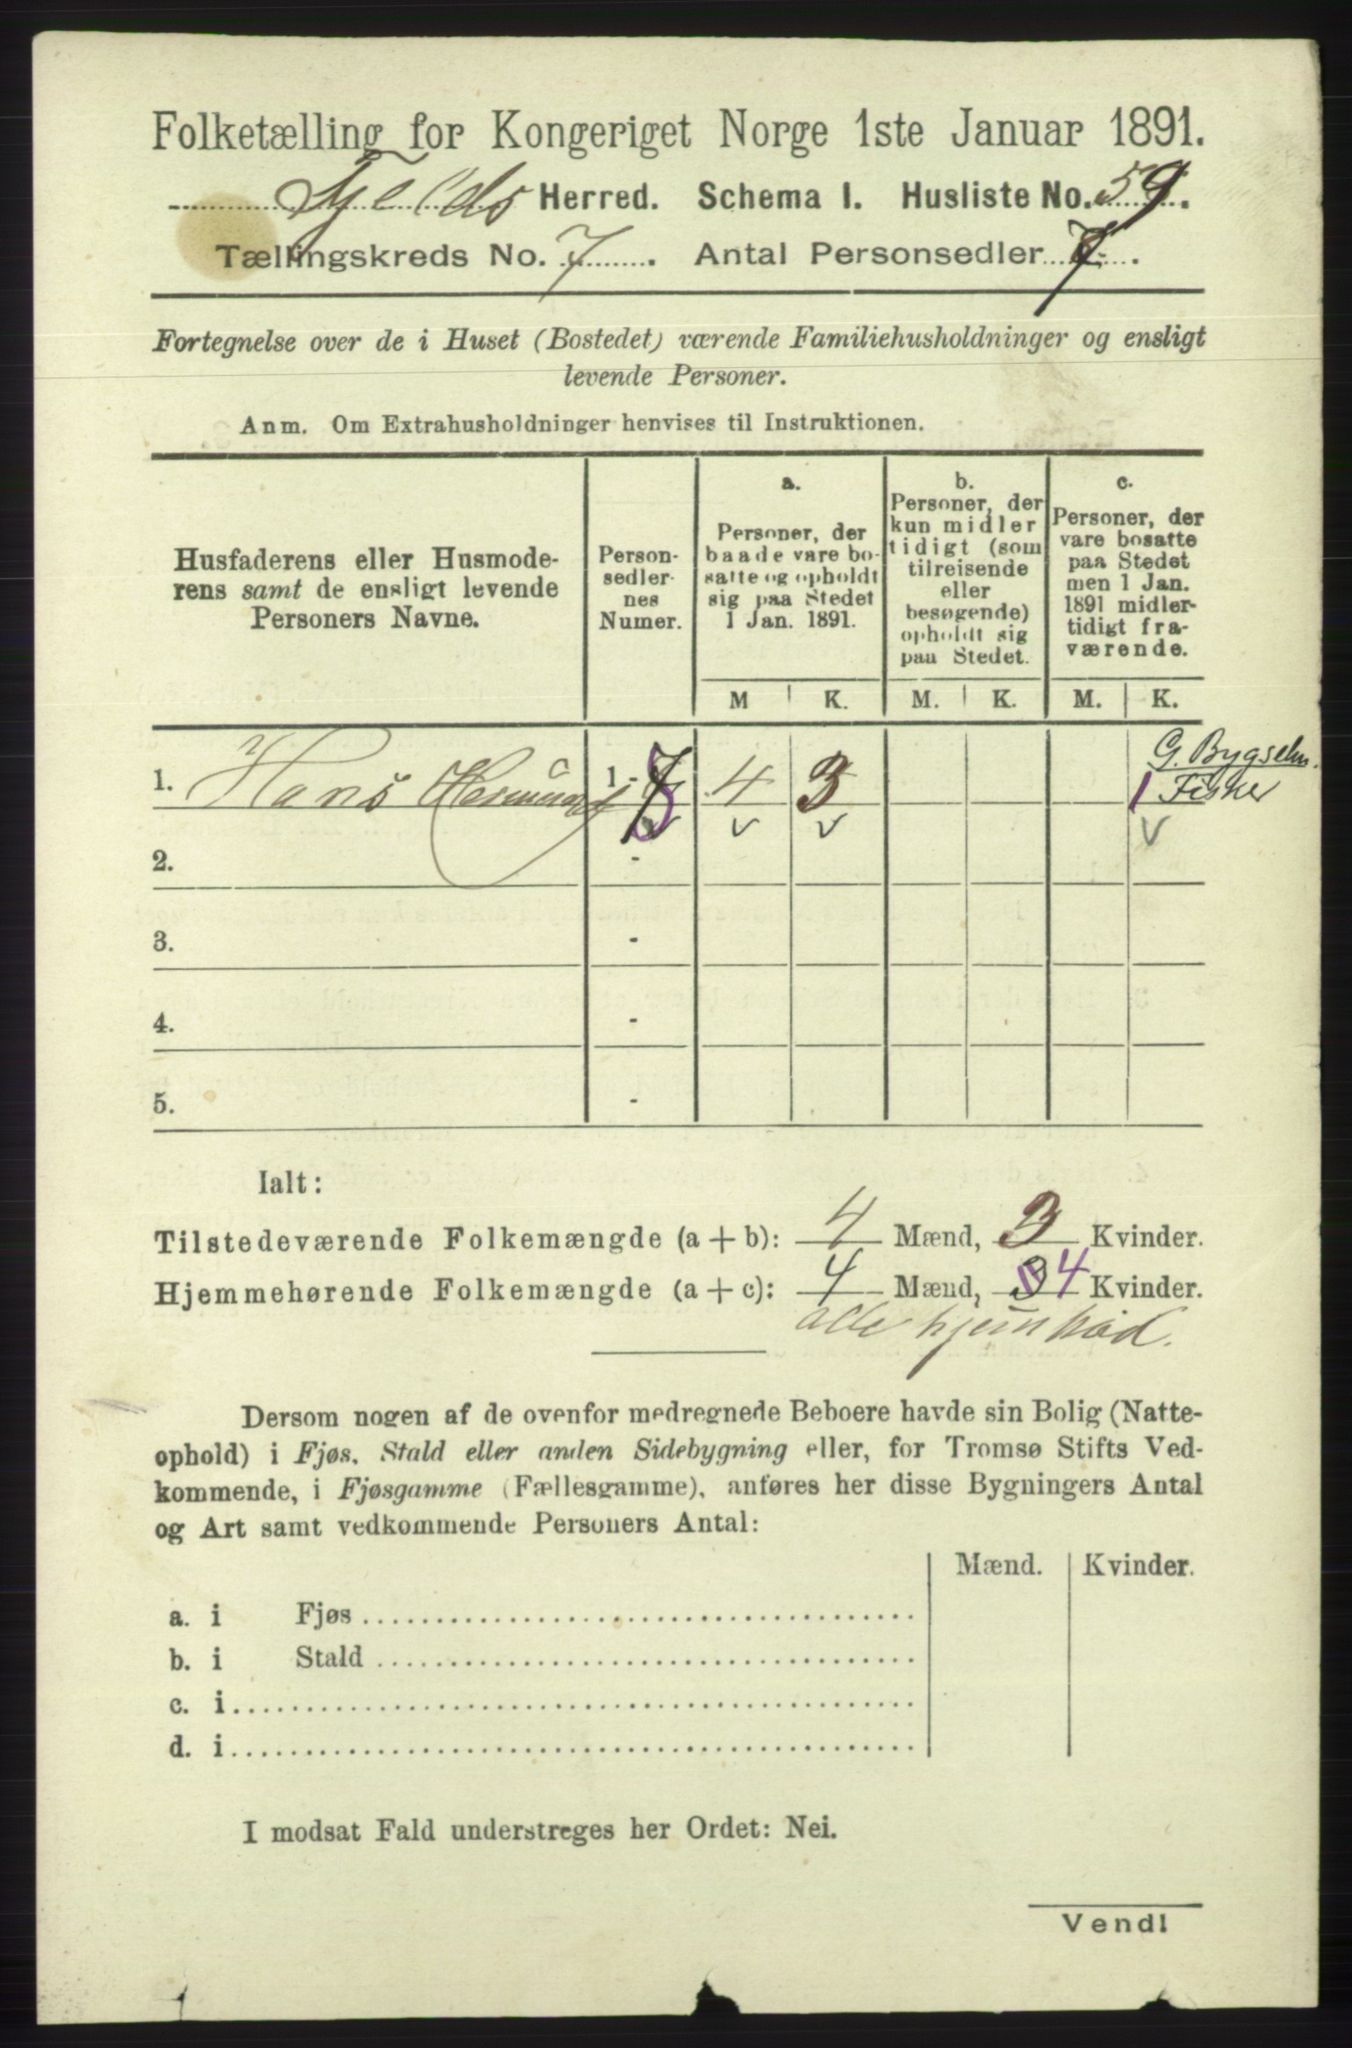 Folketælling for Kongeriget Norge 1ste Januar 1891.
Herred. Schema I. Husliste No. 59.
Tællingskreds No. 7. Antal Personsedler 7.
Fortegnelse over de i Huset (Bostedet) værende Familiehusholdninger og ensligt
levende Personer.
Anm. Om Extrahusholdninger henvises til Instruktionen.
Husfaderens eller Husmode-
rens samt de ensligt levende
Personers Navne.
Person-
sedler-
nes
Numer.
a.
Personer, der
baade vare bo-
satte og opholdt
sig paa Stedet
1 Jan. 1891.
M K.
b.
Personer, der
kun midler
tidigt (som
tilreisende
eller
besøgende)
opholdt sig
paa Stedet.
M. K.
c.
Personer, der
vare bosatte
paa Stedet
men 1 Jan.
1891 midler-
tidigt fra-
værende.
M. K.
G. Bygselm.
1. Hans 1 - 4 3 1 Fisker
v v v v
2. -
3. -
4. -
5. -
Ialt:
Tilstedeværende Folkemængde (a + b): 4 Mænd, 3 Kvinder.
Hjemmehørende Folkemængde (a + c): 4 Mænd, 3 4 Kvinder.
alle
Dersom nogen af de ovenfor medregnede Beboere havde sin Bolig (Natte-
ophold) i Fjøs, Stald eller anden Sidebygning eller, for Tromsø Stifts Ved-
kommende, i Fjøsgamme (Fællesgamme), anføres her disse Bygningers Antal
og Art samt vedkommende Personers Antal:
Mænd. Kvinder.
a. i Fjøs
b. i Stald
c. i
d. i
I modsat Fald understreges her Ordet: Nei.
Vend!